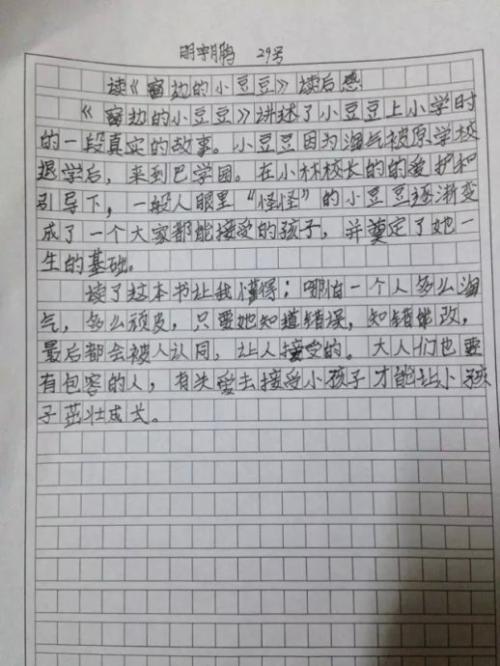 明宇鹏 29号
读《窗边的小豆豆》读后感
《窗边的小豆豆》讲述了小豆豆上小学时
的一段真实的故事。小豆豆因为淘气被原学校
退学后，来到巴学园。在小林校长的的爱护和
引导下，一般人眼里“怪怪”的小豆豆逐渐变
成了一个大家都能接受的孩子，并奠定了她一
生的基础。
读了这本书让我懂得：哪怕一个人多么淘
气，多么顽皮，只要她知道错误，知错能改，
最后都会被人认同，让人接受的。大人们也要
有包容的人，有关爱去接受小孩子才能让小孩
子茁壮成长。